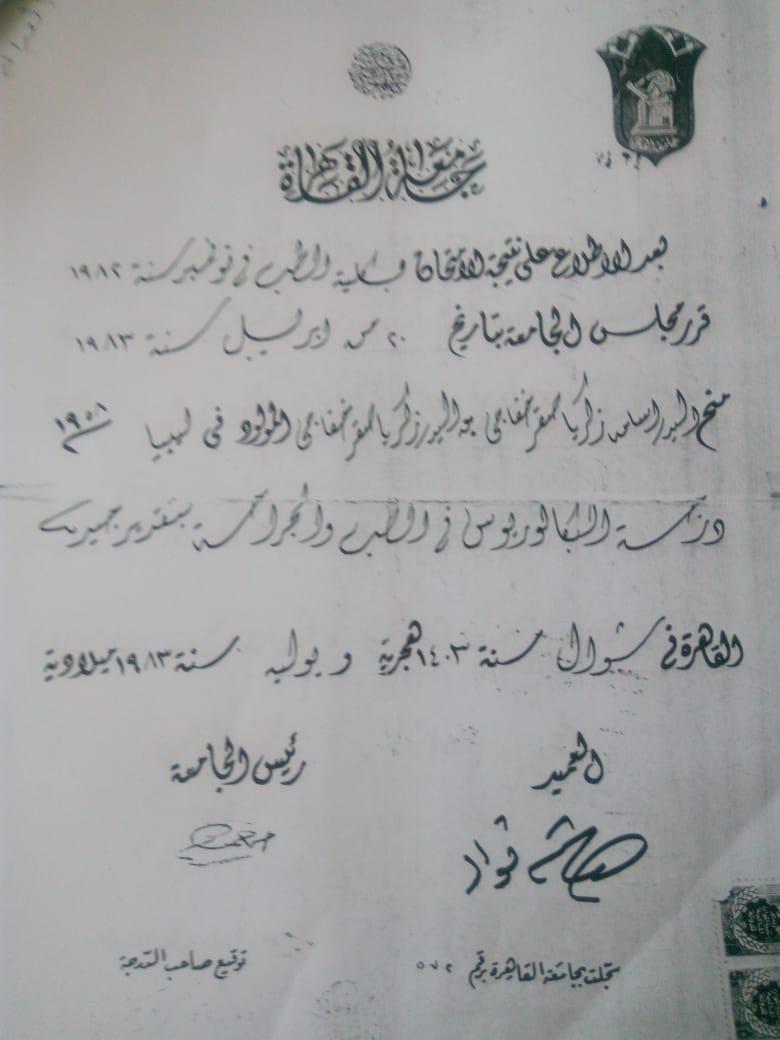 جامعة القاهرة
بعد الاطلاع على نتيجة الامتحان بكلية الطب فى نوفمبر سنة ١٩٨٢
قرر مجلس الجامعة بتاريخ ٢٠ من ابريل سنة ١٩٨٣
منح السيد اسامه زكريا صقر خفاجى بن السيد زكريا صقر خفاجى المولود فى ليبيا
درجة البكالوريوس فى الطب والجراحة بتقدير جيد
القاهرة فى شوال سنة ١٤٠٣ هجرية ويوليه سنة ١٩٨٣ ميلادية
العميد
رئيس الجامعة
هاشم فؤاد
سجلت بجامعة القاهرة برقم ٥٧٢
توقيع صاحب الدرجة